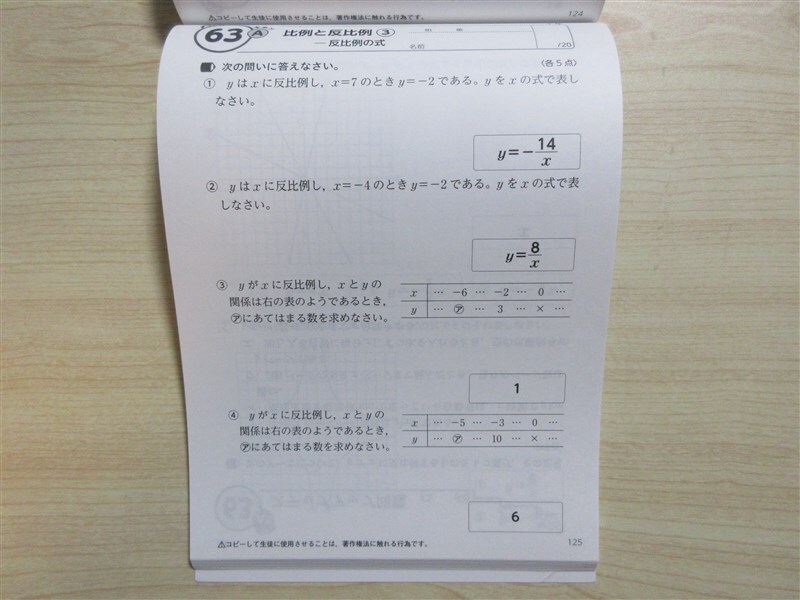 ⚠コピーして生徒に使用させることは、著作権法に触れる行為です。
124
63 A 比例と反比例 ③
―反比例の式
名前
/20
次の問いに答えなさい。 〈各5点〉
① yはxに反比例し,x=7のときy=−2である。yをxの式で表し
なさい。
y=−14/x
② yはxに反比例し,x=−4のときy=−2である。yをxの式で表
しなさい。
y=8/x
③ yがxに反比例し,xとyの
関係は右の表のようであるとき,
㋐にあてはまる数を求めなさい。
x … −6 … −2 … 0 …
y … ㋐ … 3 … × …
1
④ yがxに反比例し,xとyの
関係は右の表のようであるとき,
㋐にあてはまる数を求めなさい。
x … −5 … −3 … 0 …
y … ㋐ … 10 … × …
6
⚠コピーして生徒に使用させることは、著作権法に触れる行為です。
125